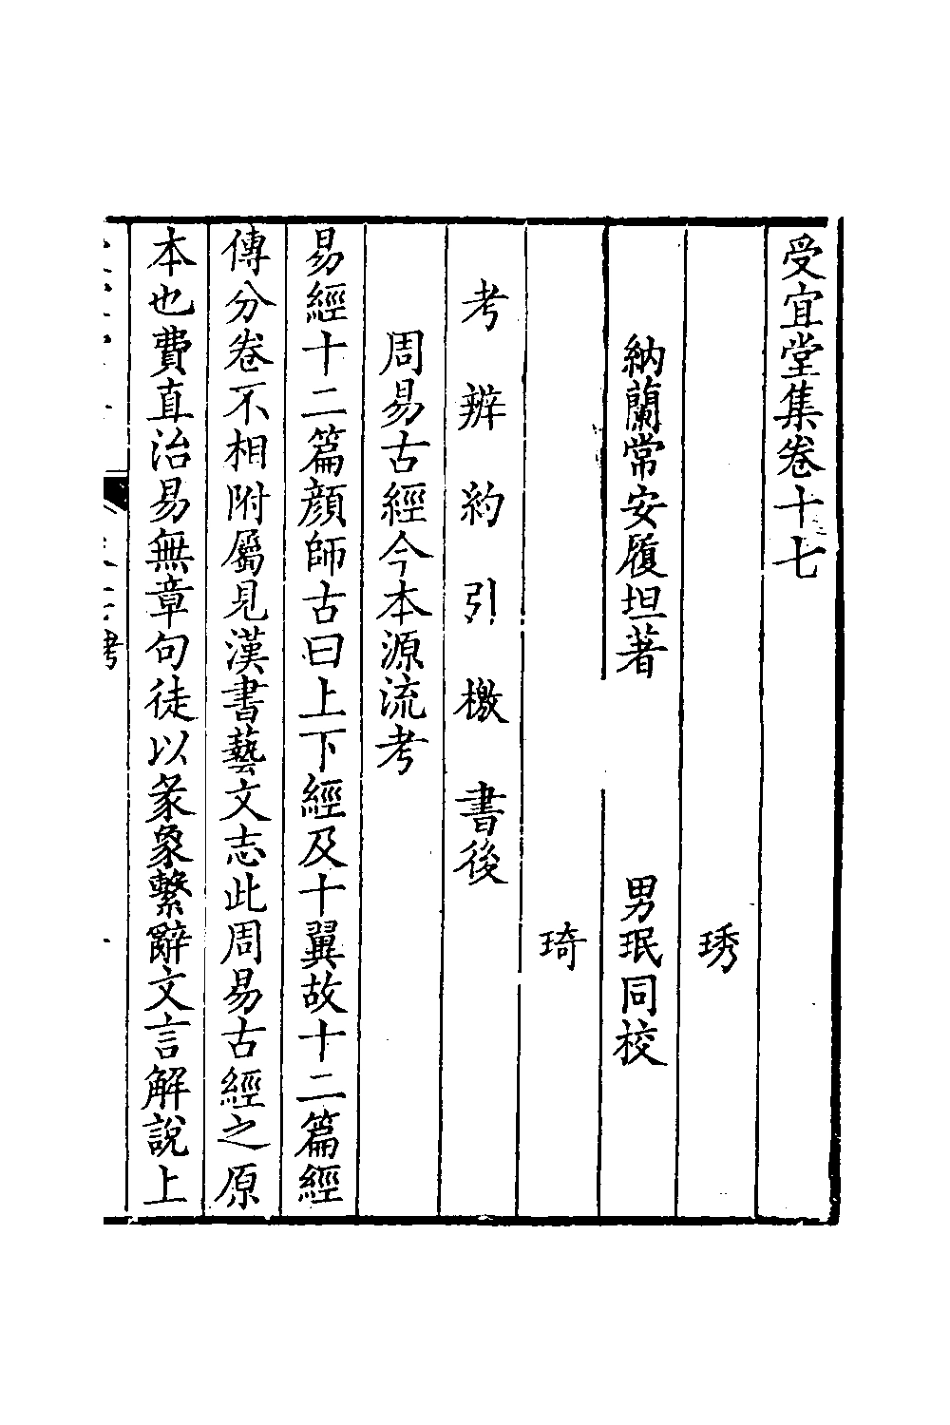 受宜堂集卷十七
琇
納蘭常安履坦著 男珉同校
琦
考 辨 約 引 檄 書後
周易古經今本源流考
易經十二篇顔師古曰上下經及十翼故十二篇經
傳分卷不相附屬見漢書藝文志此周易古經之原
本也費直治易無章句徒以彖象繫辭文言解說上